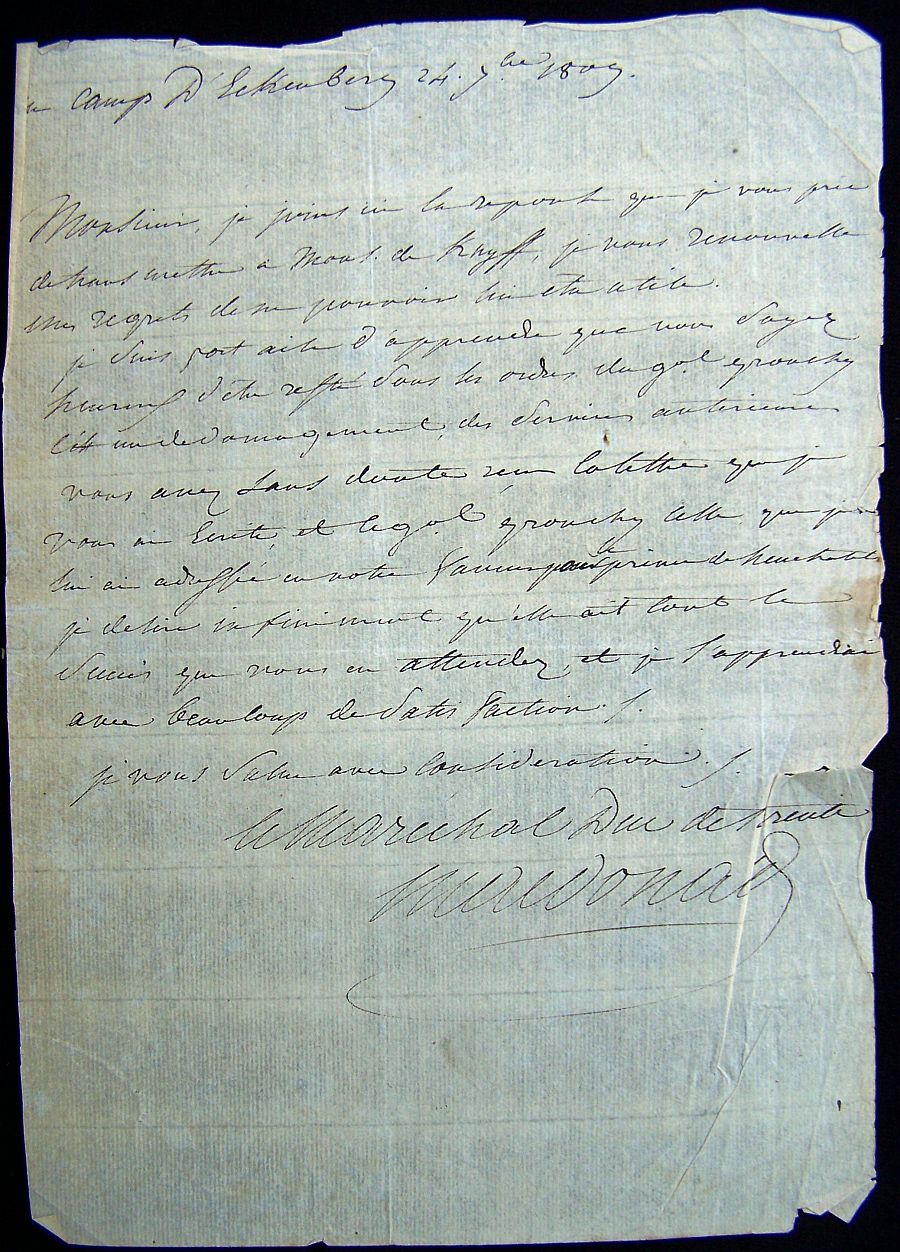 au camp D'Eckenberg 24. 7bre 1809.
Monsieur, je joins ici la reponse que je vous prie
de transmettre à Mons. de Knyff, je vous renouvelle
mes regrets de ne pouvoir lui etre utile.
je suis fort aise d'apprendre que vous soyez
heureux d'être resté sous les ordres du gal grouchy
c'est un dedomagement des services anterieurs
vous avez sans doute reçu la lettre que je
vous ai ecrite, et le gal grouchy celle que je
lui ai adressée en votre faveur pour le prince de neuchatel
je desire infiniment qu'elle ait tout le
succès que vous en attendez, et je l'apprendrai
avec beaucoup de satisfaction ./.
je vous salue avec consideration ./.
le Maréchal Duc de tarente
Macdonald